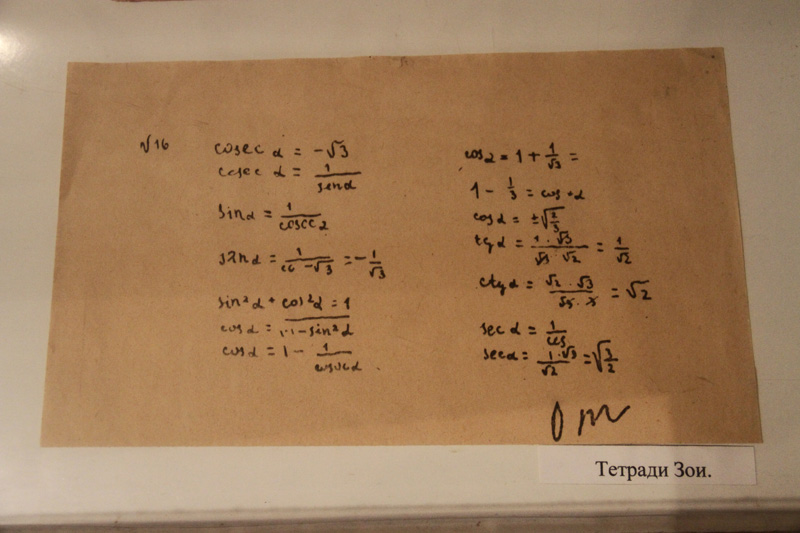 √16
cosec α = -√3
cosec α = 1/senα
sinα = 1/cosec α
sinα = 1/-√3 = -1/√3
sin²α + cos²α = 1
cosα = 1-sin²α
cosα = 1 - 1/cosecα
cosα = 1 + 1/√3 =
1 - 1/3 = cos α
cosα = ±√2/3
tgα = 1·√3/√3·√2 = 1/√2
ctgα = √2·√3/√3 = √2
sec α = 1/cos
secα = 1·√3/√2 = √3/2
Тетради Зои.